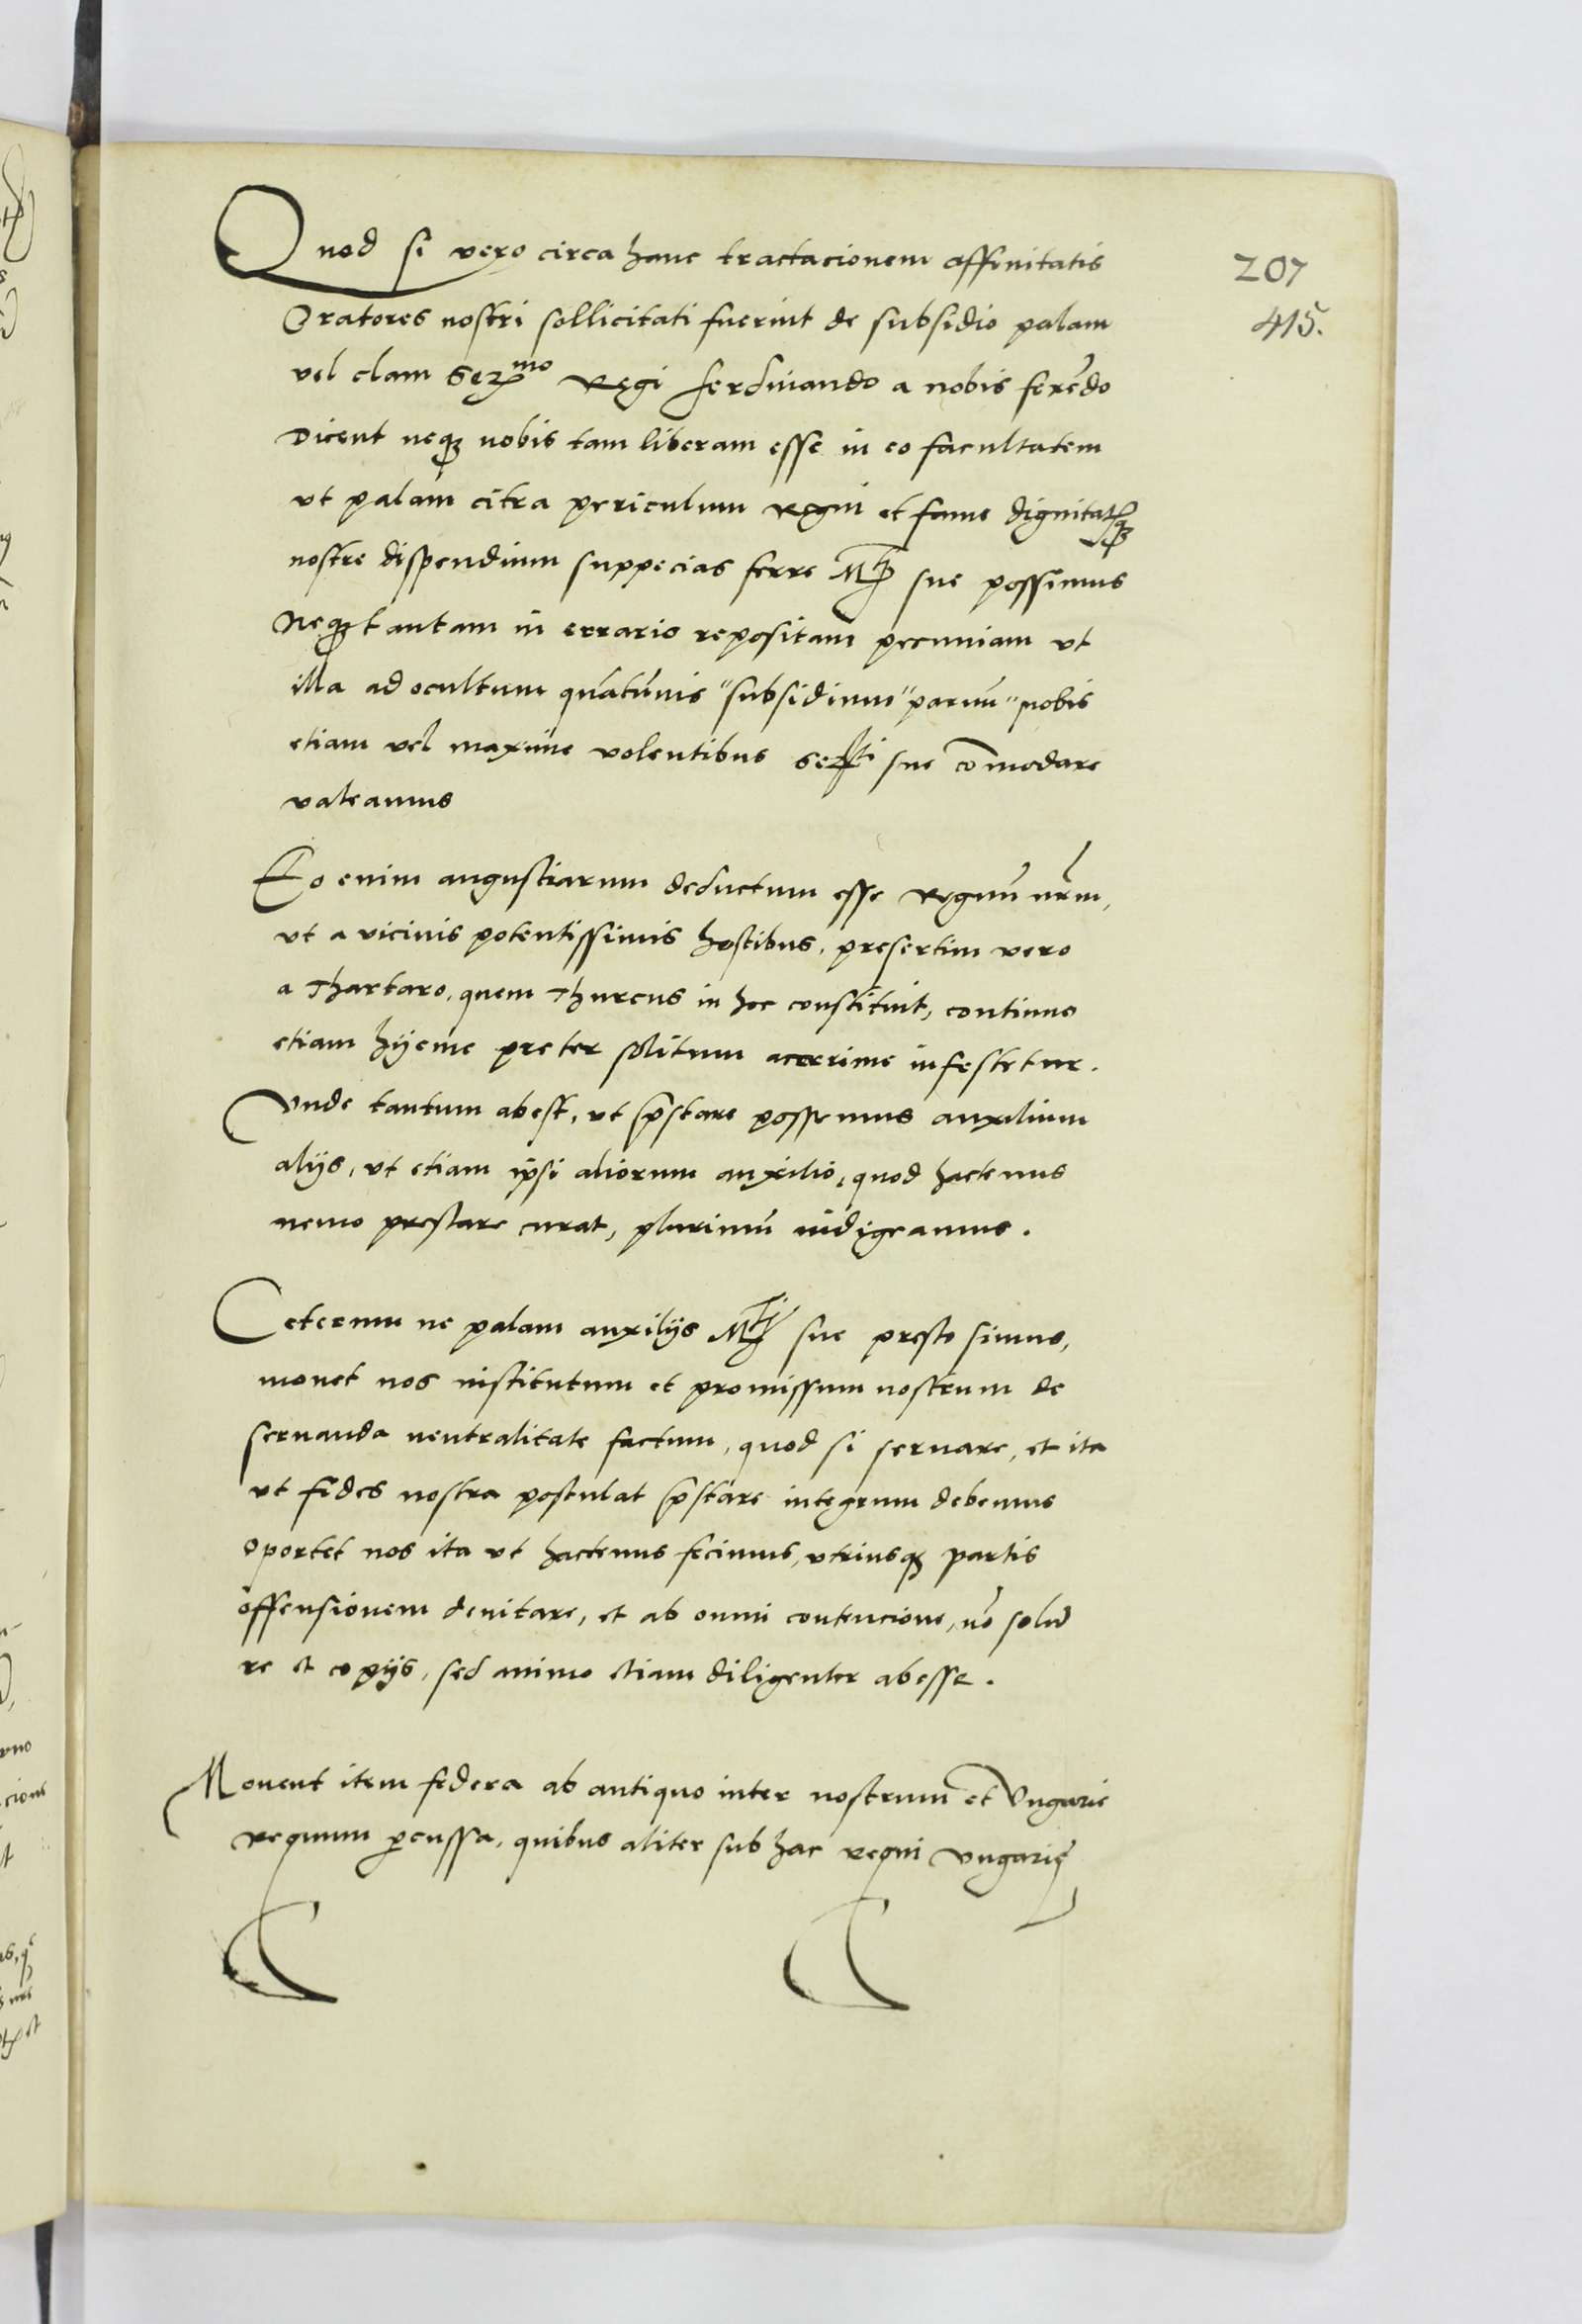 Quod si vero circa hanc tractacionem affinitatis
207
Oratores nostri sollicitati fuerint de subsidio palam
415.
vel clam Ser^mo Regi ferdinando a nobis ferēdo
Dicent neqꝫ nobis tam liberam esse in eo facultatem
ut palam citra periculum regni et fame dignitatisqꝫ
nostre dispendium suppecias ferre M^ti sue possimus
Neqꝫ tantam in errario repositam pecuniam ut
illa ad ocultum quātūuis "subsidium" parum" nobis
etiam vel maxime volentibus Ser^ti sue cōmodare
valeamus
Eo enim angustiarum deductum esse regnū nr̄m,
ut a vicinis potentissimis hostibus, presertim vero
a Thartaro, quem Thurcus in hoc constituit, continuo
etiam hyeme preter solitum acerrime infestetur.
Vnde tantum abest, ut p̄stare possemus auxilium
alijs, ut etiam ipsi aliorum auxilio, quod hactenus
nemo prestare curat, plurimū indigeamus.
Ceterum ne palam auxilijs M^ti sue presto simus,
monet nos institutum et promissum nostrum de
seruanda neutralitate factum, quod si seruare, et ita
ut fides nostra postulat p̄stare integrum debemus
oportet nos ita ut hactenus fecimus, utriusqꝫ partis
offensionem deuitare, et ab omni contencione, nō solū
re et copijs, sed animo etiam diligenter abesse.
Mouent item federa ab antiquo inter nostrum et Vngarie
regnum ꝑcussa, quibus aliter sub hac regni vngarię